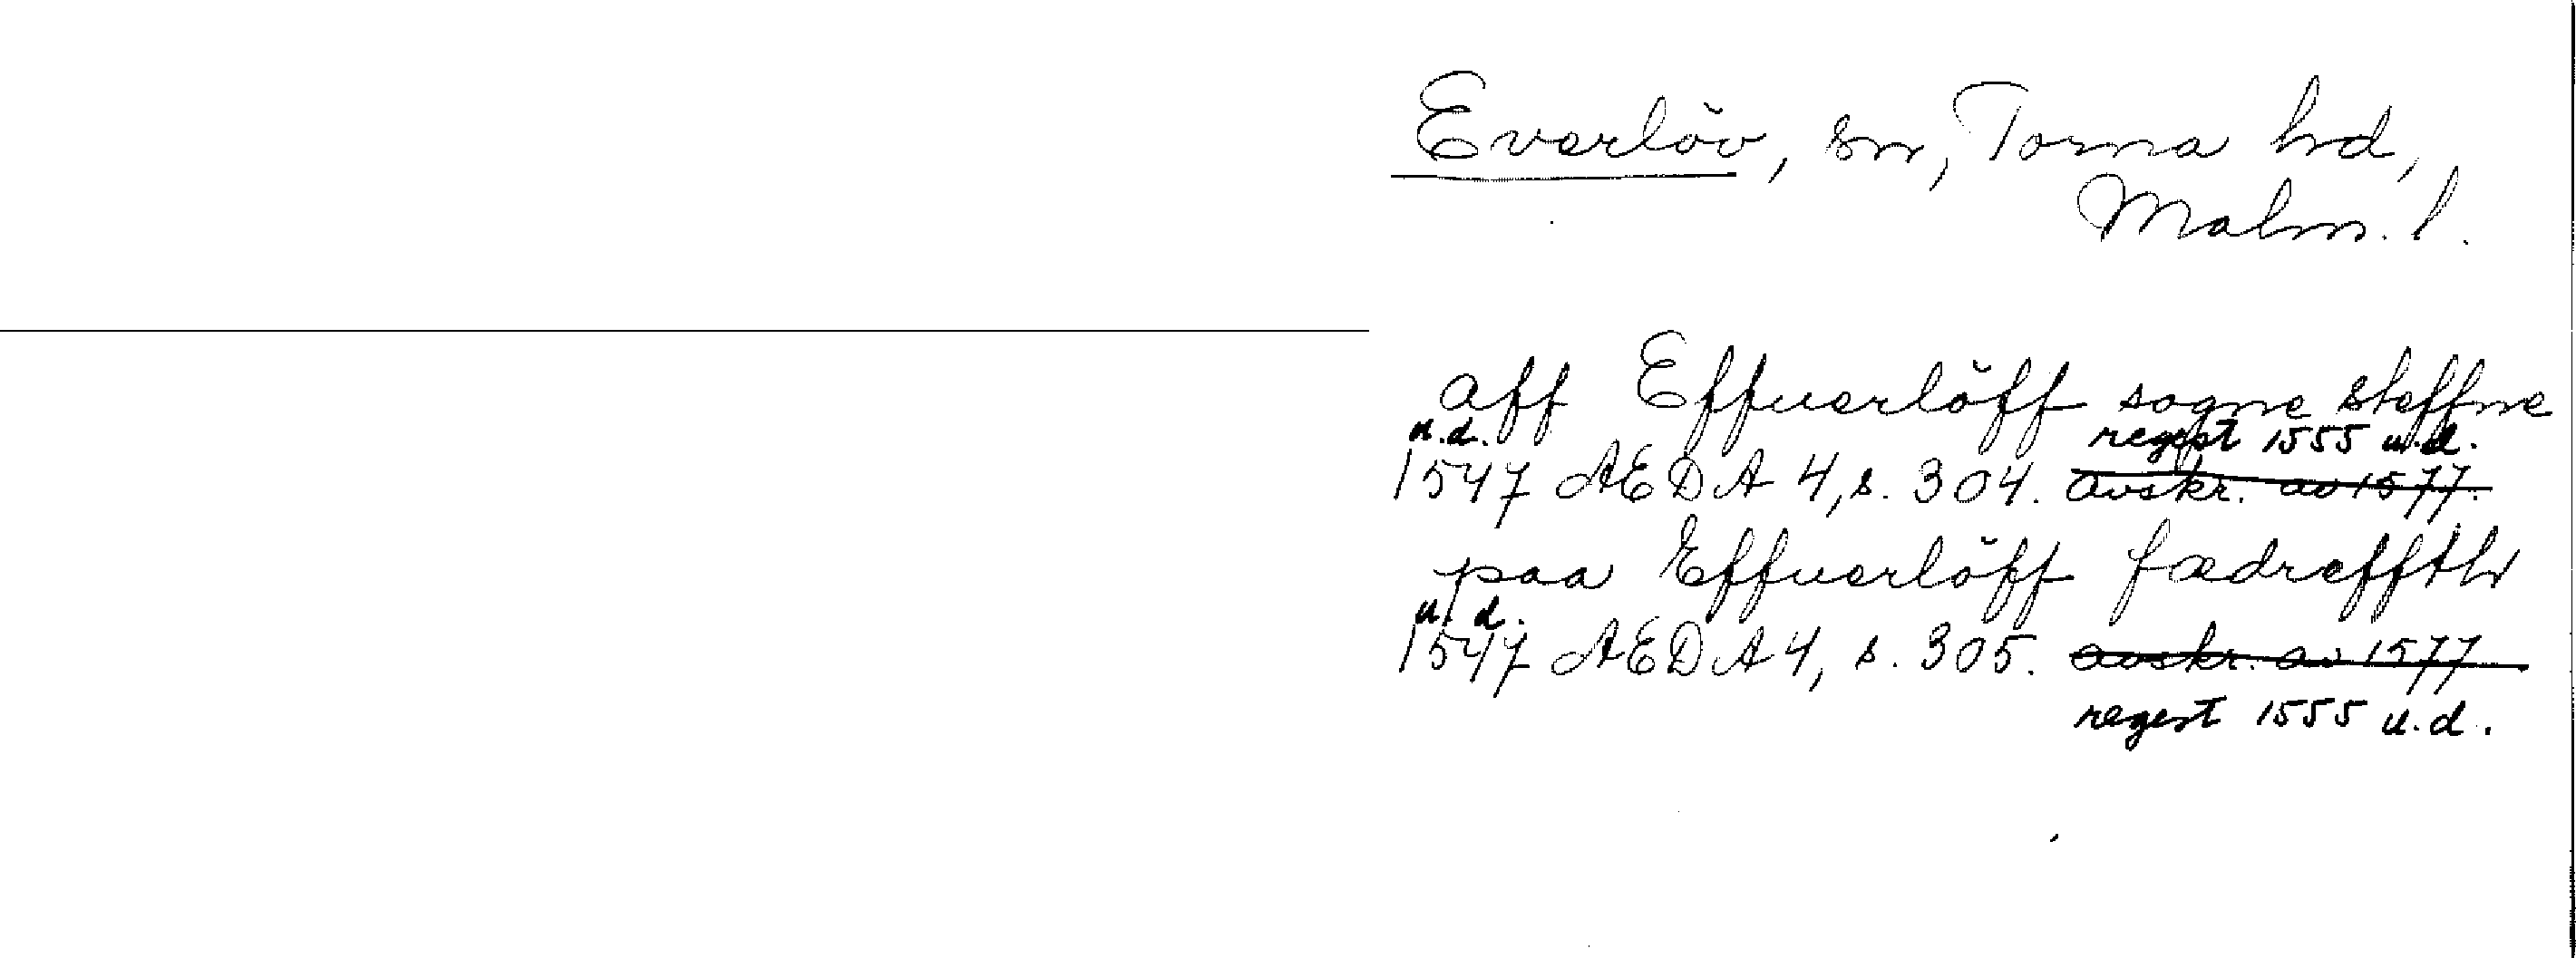 Everlöv, sn, Torna hd,
Malm. l.
aff Effuerlöff sogne steffne
u.d. regest 1555 u.d.
1547 AEDA 4, s. 304. avskr. av 1577.
paa Effuerlöff fædreffth
u. d.
1547 AEDA 4, s. 305. avskr. av 1577
regest 1555 u.d.